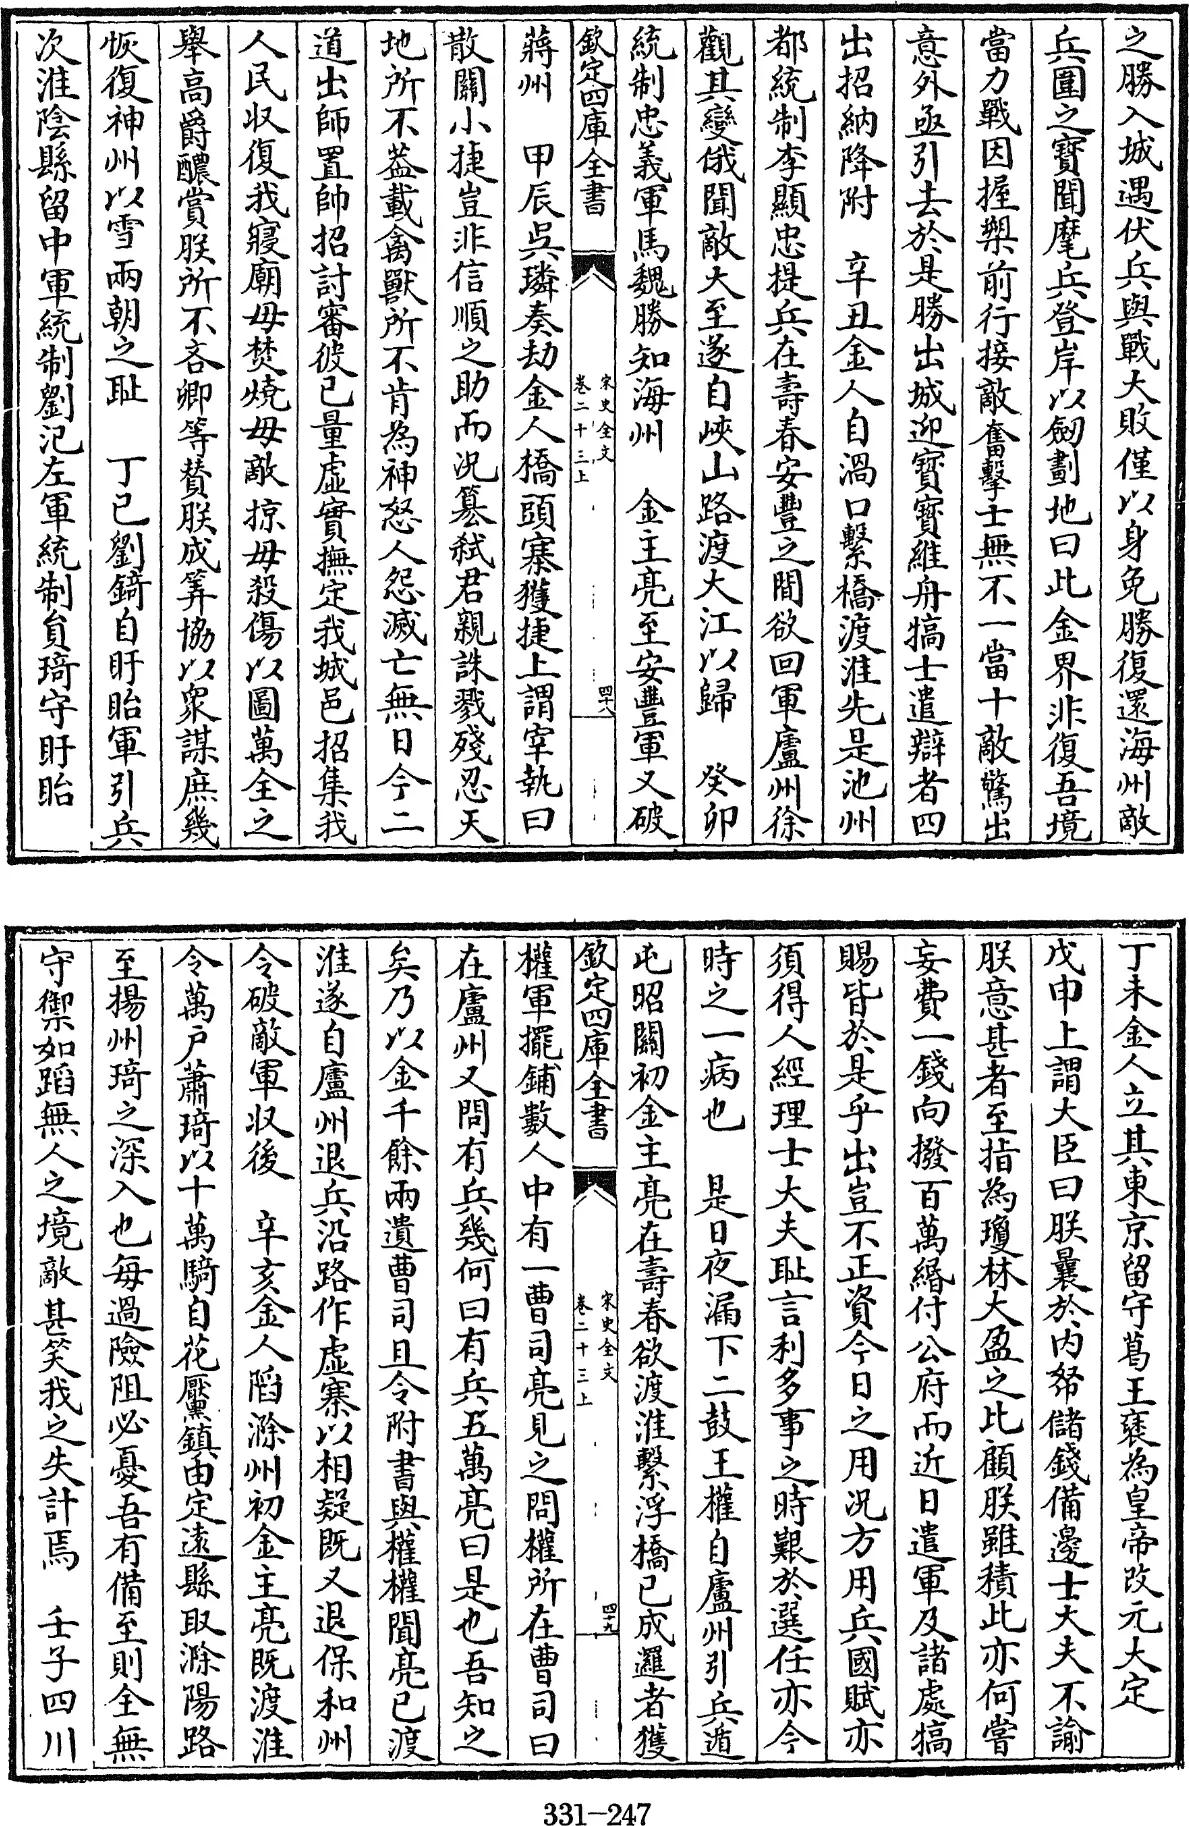 之勝入城遇伏兵與戰大敗僅以身免勝復還海州敵
兵圍之寶聞麾兵登岸以劒劃地曰此金界非復吾境
當力戰因握槊前行接敵奮擊士無不一當十敵驚出
意外亟引去於是勝出城迎寶寶維舟犒士遣辯者四
出招納降附　辛丑金人自渦口繫橋渡淮先是池州
都統制李顯忠提兵在壽春安豐之間欲回軍廬州徐
觀其變俄聞敵大至遂自峽山路渡大江以歸　癸卯
統制忠義軍馬魏勝知海州　金主亮至安豐軍又破
欽定四庫全書
宋史全文
卷二十三上
四十八
蔣州　甲辰吳璘奏劫金人橋頭寨獲捷上謂宰執曰
散關小捷豈非信順之助而况簒弑君親誅戮殘忍天
地所不葢載禽獸所不肯為神怒人怨滅亡無日今二
道出師置帥招討審彼已量虛實撫定我城邑招集我
人民収復我寢廟毋焚燒毋敵掠毋殺傷以圖萬全之
舉高爵醲賞朕所不吝卿等賛朕成筭協以衆謀庶幾
恢復神州以雪兩朝之耻　丁已劉錡自盱眙軍引兵
次淮陰縣留中軍統制劉汜左軍統制員琦守盱眙
丁未金人立其東京留守葛王褎為皇帝改元大定
戊申上謂大臣曰朕曩於内帑儲錢備邊士大夫不諭
朕意甚者至指為瓊林大盈之比顧朕雖積此亦何嘗
妄費一錢向撥百萬緡付公府而近日遣軍及諸處犒
賜皆於是乎出豈不正資今日之用况方用兵國賦亦
須得人經理士大夫耻言利多事之時艱於選任亦今
時之一病也　是日夜漏下二鼓王權自廬州引兵遁
屯昭關初金主亮在壽春欲渡淮繫浮橋已成邏者獲
欽定四庫全書
宋史全文
卷二十三上
四十九
權軍擺鋪數人中有一曹司亮見之問權所在曹司曰
在廬州又問有兵幾何曰有兵五萬亮曰是也吾知之
矣乃以金千餘兩遺曹司且令附書與權權聞亮已渡
淮遂自廬州退兵沿路作虛寨以相疑既又退保和州
令破敵軍収後　辛亥金人䧟滁州初金主亮既渡淮
令萬户蕭琦以十萬騎自花靨鎮由定遠縣取滁陽路
至揚州琦之深入也每過險阻必憂吾有備至則全無
守禦如蹈無人之境敵甚笑我之失計焉　壬子四川
331-247